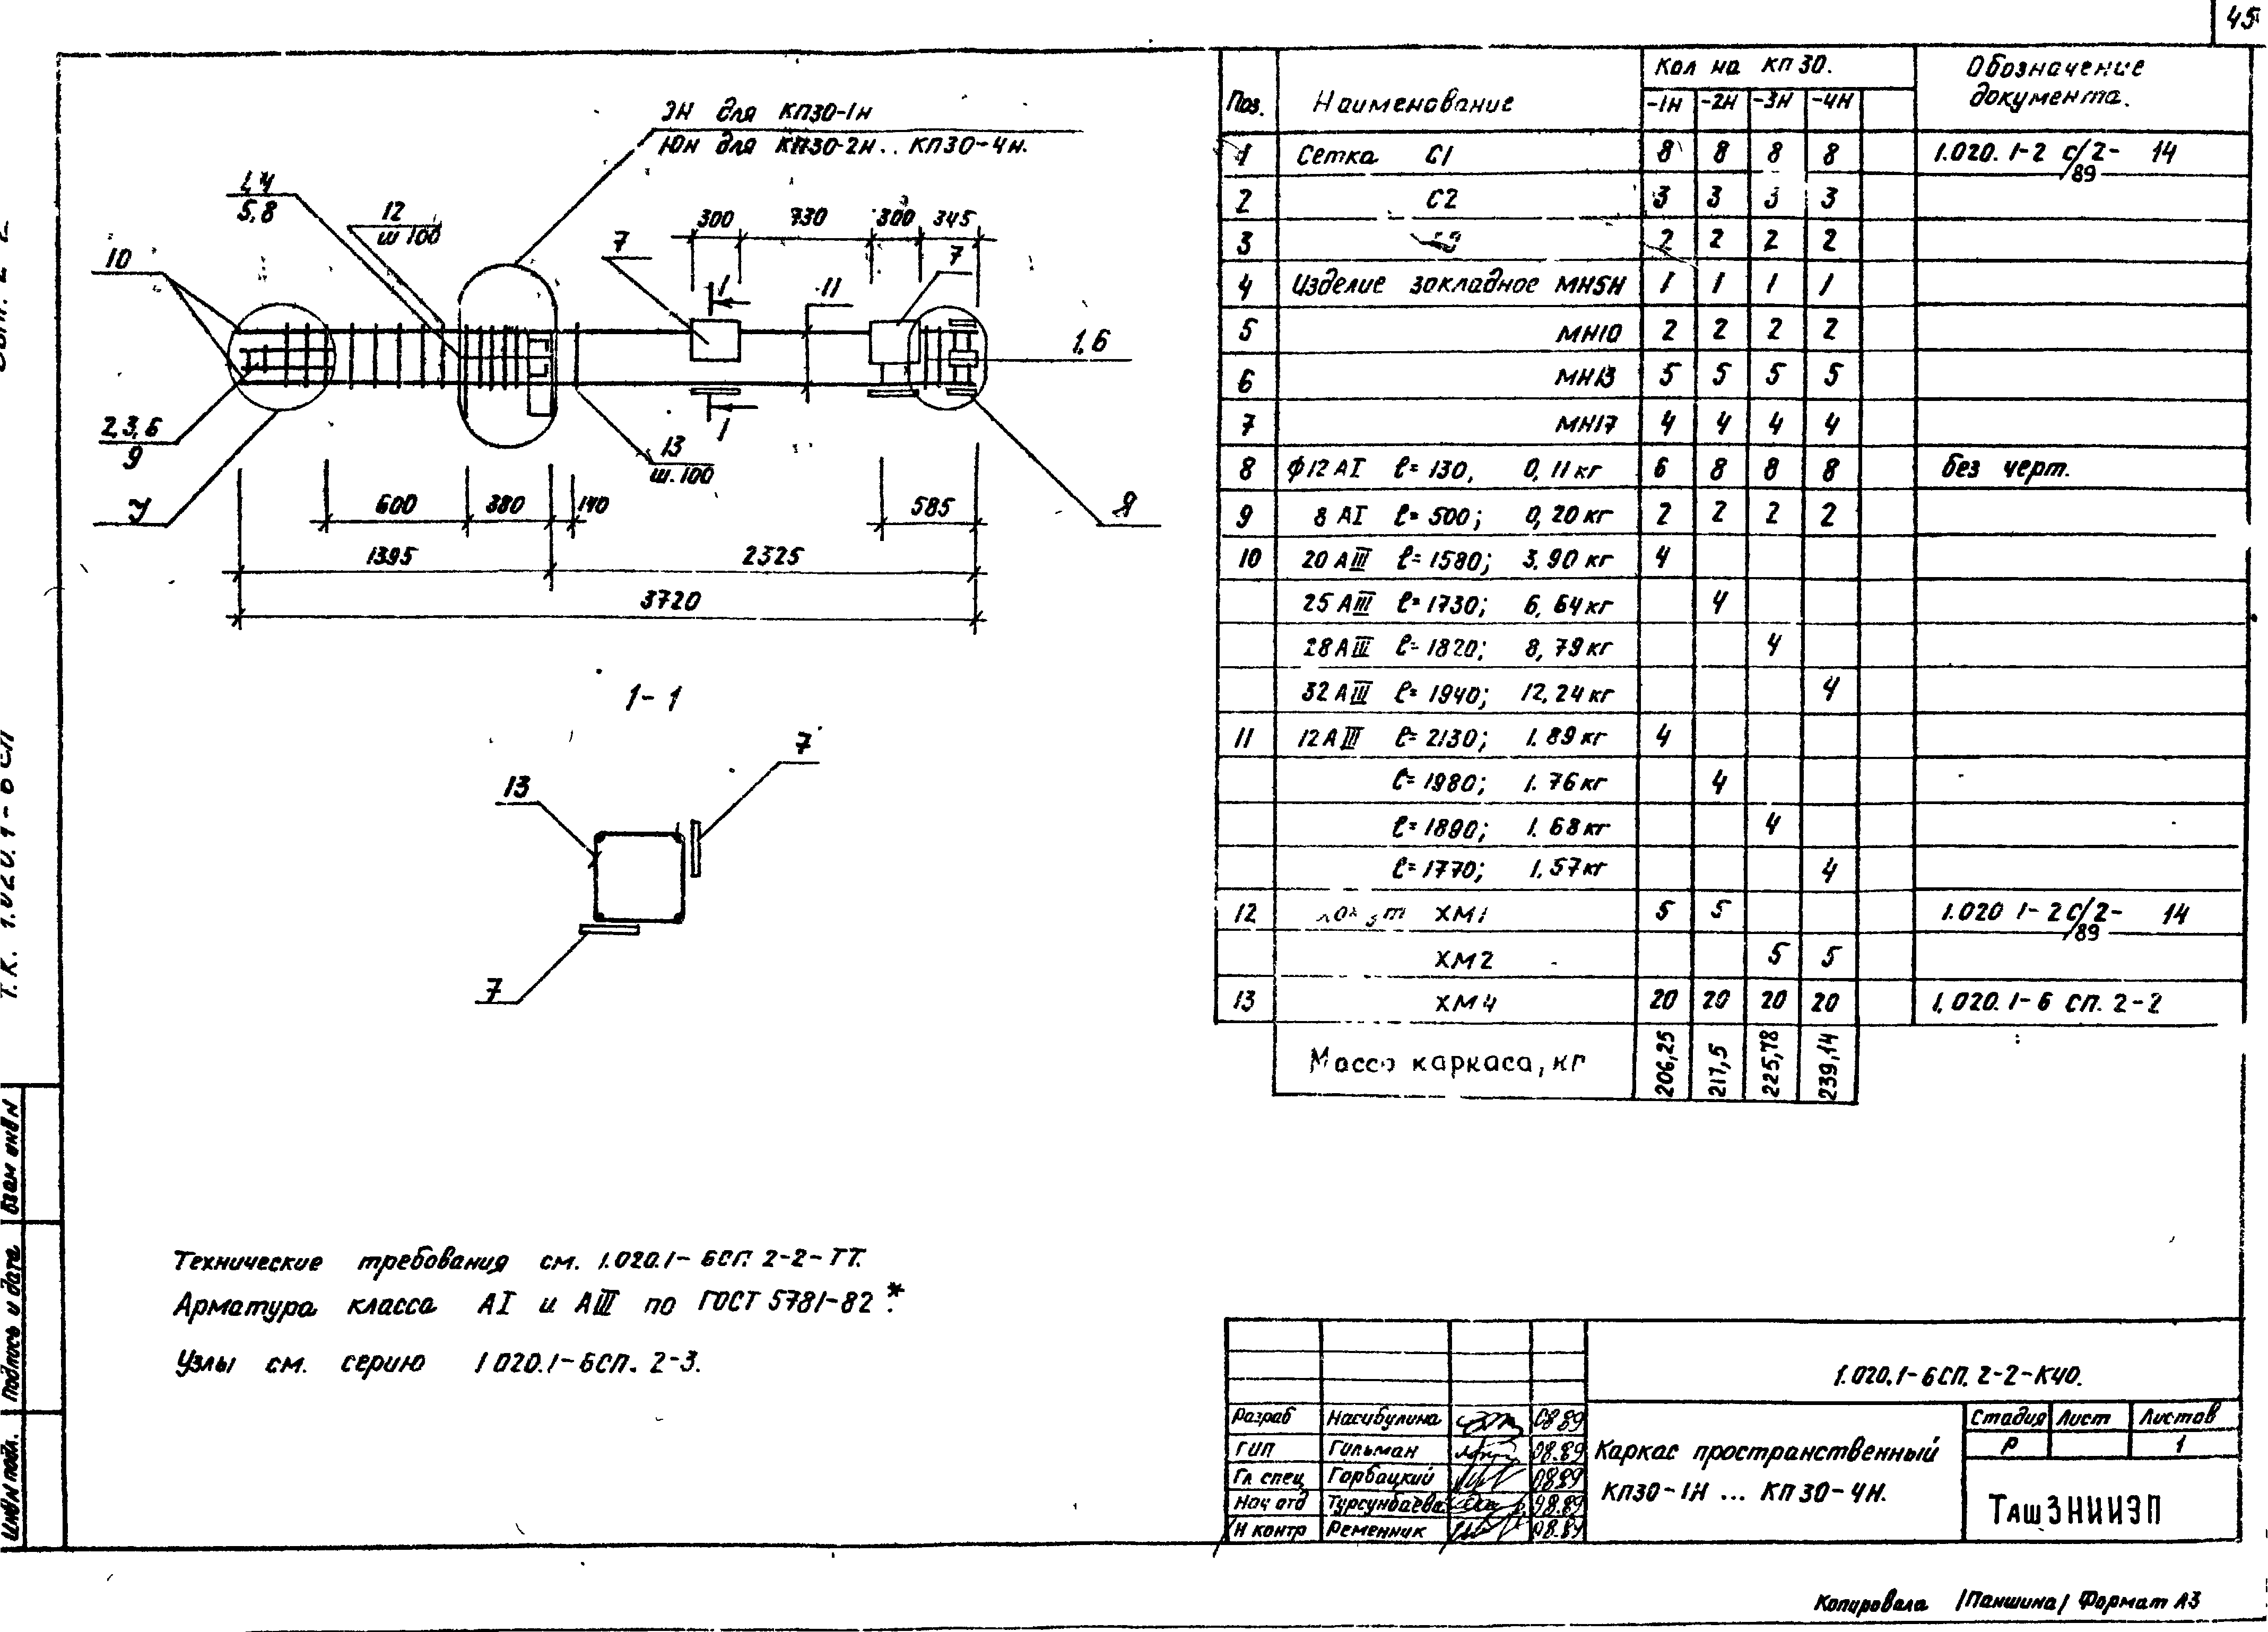 45
ЭН для КП30-1Н
Юн для КП30-2Н.. КП30-4Н.
5,8
12
ш 100
10
300 730 300 345
7
7
1
11
1,6
2,3,6
9
У
1
13
ш.100
Я
600 380 140 585
1395 2325
3720
1-1
13
7
7
Поз. Наименование Кол на КП 30. Обозначение документа.
-1Н -2Н -3Н -4Н
1 Сетка С1 8 8 8 8 1.020.1-2 с/2- 14
/89
2 С2 3 3 3 3
3 2 2 2 2
4 Изделие закладное МН5Н 1 1 1 1
5 МН10 2 2 2 2
6 МН13 5 5 5 5
7 МН17 4 4 4 4
8 ф12 АI ℓ=130, 0,11кг 6 8 8 8 без черт.
9 8 АI ℓ=500; 0,20кг 2 2 2 2
10 20 АIII ℓ=1580; 3.90 кг 4
25 АIII ℓ=1730; 6,64кг 4
28АIII ℓ=1820; 8,79кг 4
32 АIII ℓ=1940; 12.24кг 4
11 12АIII ℓ=2130; 1.89кг 4
ℓ=1980; 1.76кг 4
ℓ=1890; 1.68кг 4
ℓ=1770; 1.57кг 4
12 ХМ1 5 5 1.020 1-2с/2- 14
/89
ХМ2 5 5
13 ХМ4 20 20 20 20 1.020.1-6 СП. 2-2
Масса каркаса, кг 206,25 217,5 225,78 239,14
Технические требования см. 1.020.1-6СП. 2-2-ТТ.
Арматура класса АI и АIII по ГОСТ 5781-82*.
Узлы см. серию 1 020.1-6СП. 2-3.
Т.К. 1.020.1-6 СП
Взам инв N
Подпись и дата
Инв N подл.
1.020.1-6СП. 2-2-К40.
Разраб Насибулина 08.89
ГИП Гильман 08.89
Гл. спец Горбацкий 08.89
Нач отд Турсунбаева 08.89
Н контр Ременник 08.89
Каркас пространственный
КП30-1Н ... КП 30-4Н.
Стадия Лист Листов
Р 1
ТашЗНИИЭП
Копировала /Паншина/ Формат А3